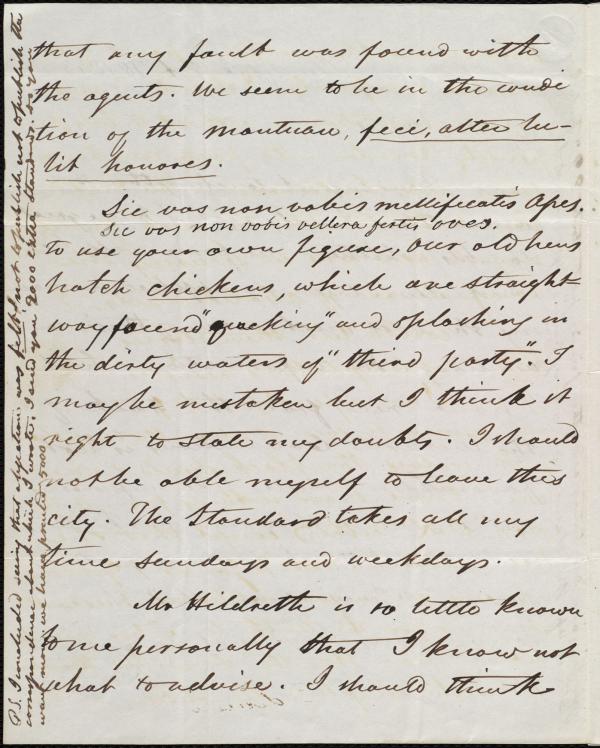 that any fault was found with
the agents. We seem to be in the condi
tion of the mantuan, feci, alter tu-
lit honores.
Sic vos non vobis mellificatis Apes.
Sic vos non vobis vellera fertis oves.
to use your own figure, our old hens
hatch chickens, which are straight-
way found "quacking" and splashing in
the dirty waters of "third party". I
may be mistaken but I think it
right to state my doubts. I should
not be able myself to leave this
city. The Standard takes all my
time sundays and weekdays.
Mr Hildreth is so little known
to me personally that I know not
what to advise. I should think
P.S. I concluded seeing that objection was felt, not to publish the
correspondence and which I wrote. I send you 2000 extra Standards.
we have printed 5000